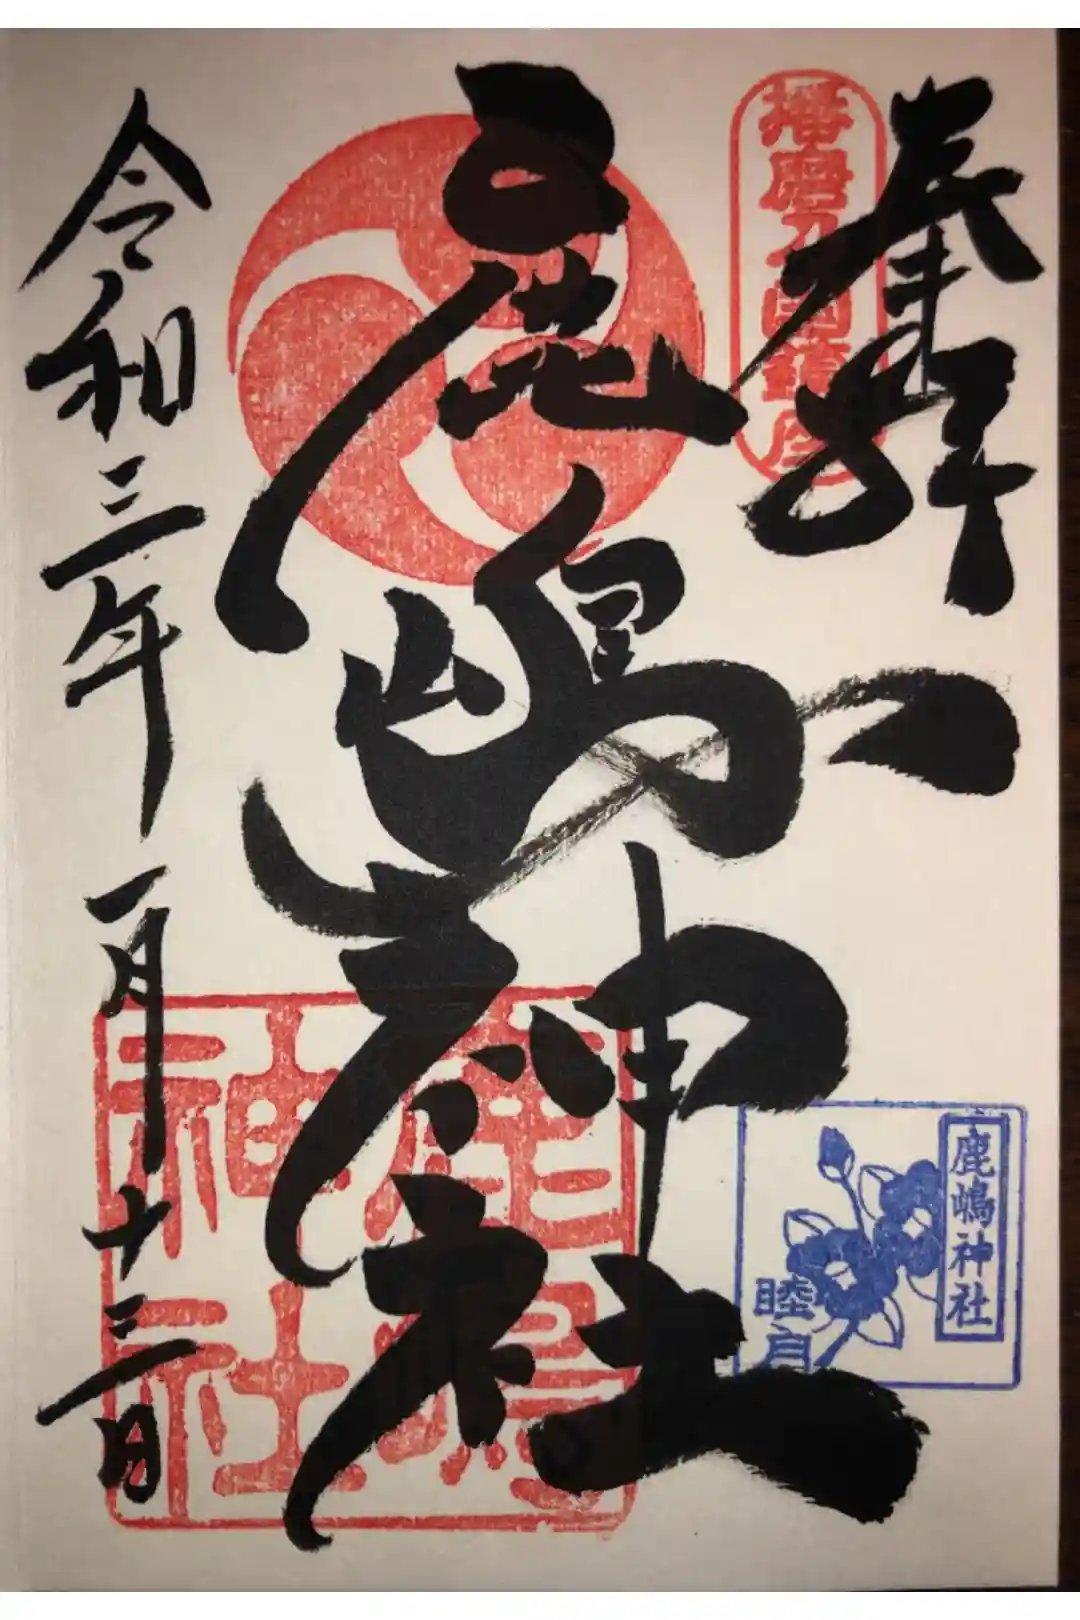 奉拝
鹿嶋神社
令和三年一月十三日
鹿嶋神社
睦月
鹿嶋
神社